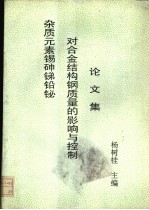 杂质元素锡砷锑铅铋
对合金结构钢质量的影响与控制
论文集
杨树桂 主编